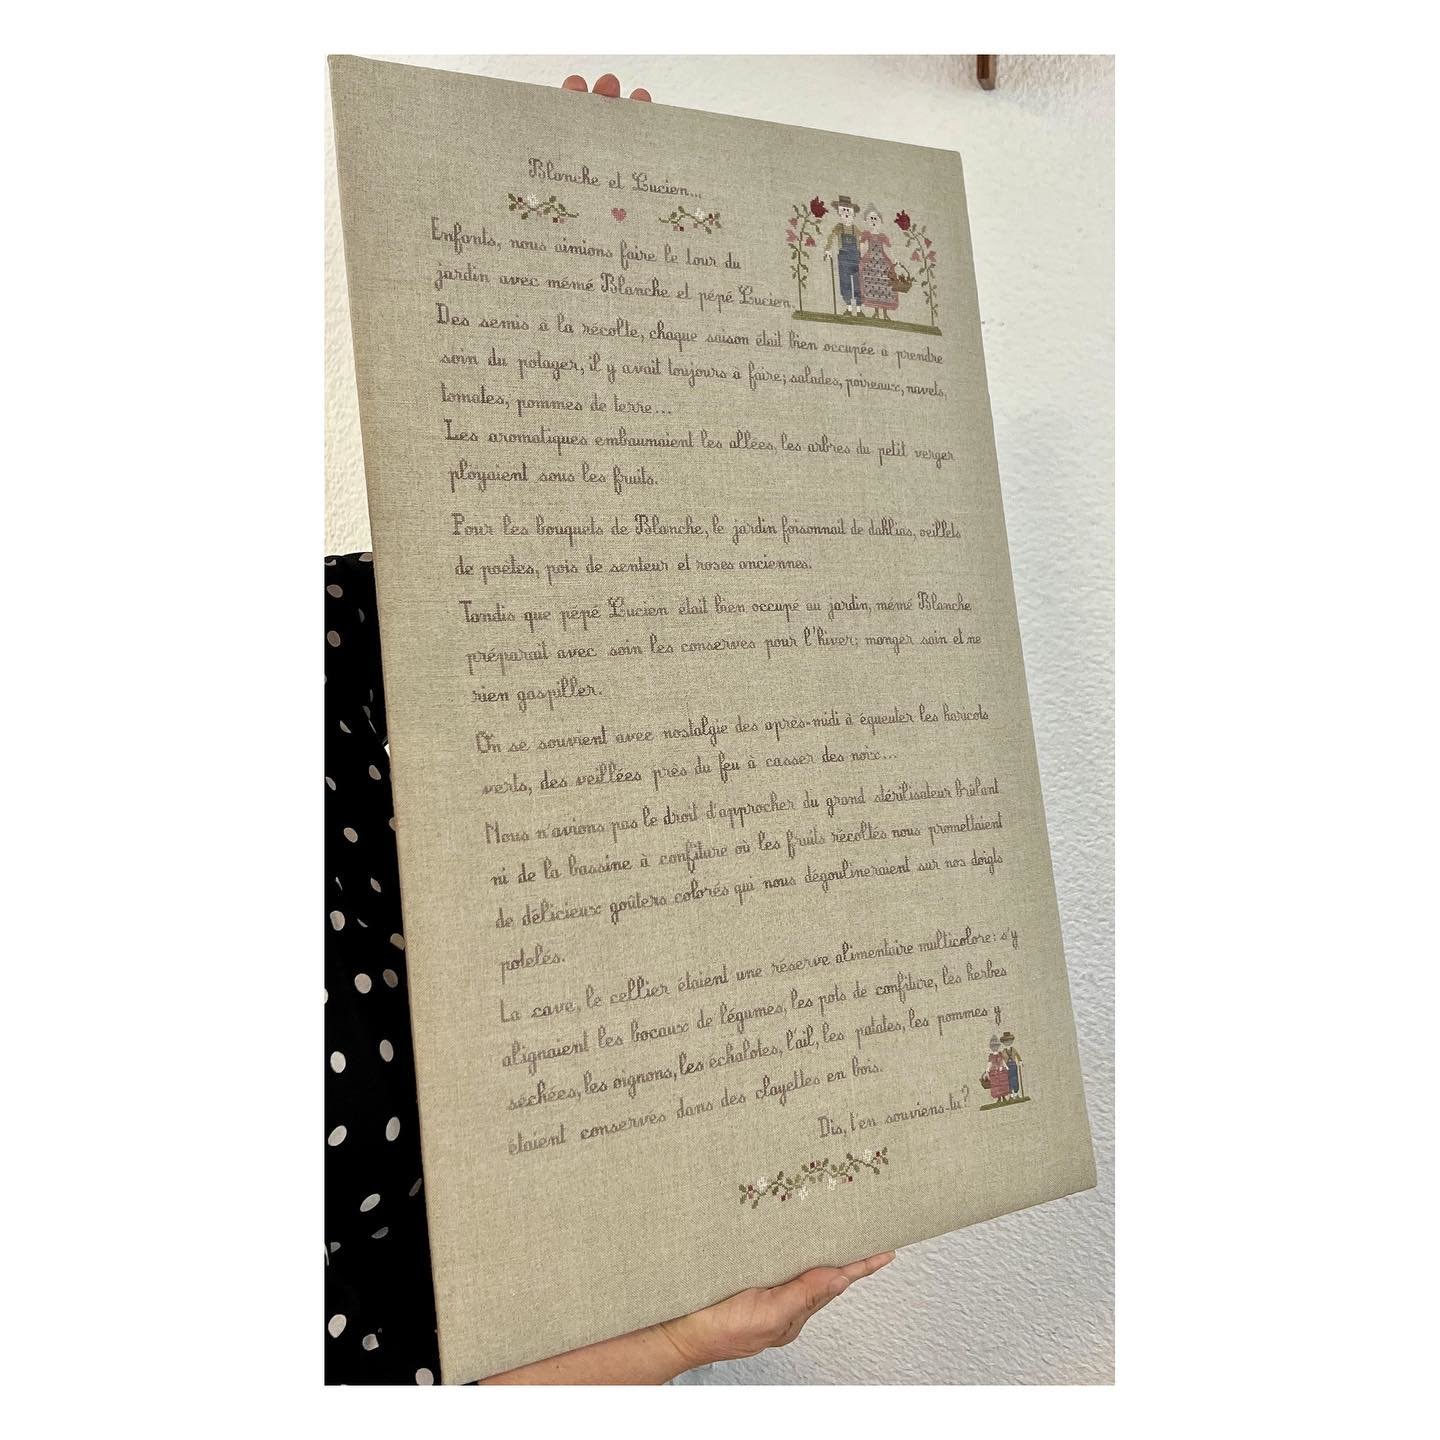 Blanche et Lucien...
Enfants, nous aimions faire le tour du
jardin avec mémé Blanche et pépé Lucien.
Des semis à la récolte, chaque saison était bien occupée à prendre
soin du potager, il y avait toujours à faire; salades, poireaux, navets,
tomates, pommes de terre...
Les aromatiques embaumaient les allées, les arbres du petit verger
ployaient sous les fruits.
Pour les bouquets de Blanche, le jardin foisonnait de dahlias, oeillets
de poètes, pois de senteur et roses anciennes.
Tandis que pépé Lucien était bien occupé au jardin, mémé Blanche
préparait avec soin les conserves pour l'hiver; manger sain et ne
rien gaspiller.
On se souvient avec nostalgie des après-midi à équeuter les haricots
verts, des veillées près du feu à casser des noix...
Nous n'avions pas le droit d'approcher du grand stérilisateur brûlant
ni de la bassine à confiture où les fruits récoltés nous promettaient
de délicieux goûters colorés qui nous dégoulineraient sur nos doigts
potelés.
La cave, le cellier étaient une réserve alimentaire multicolore: s'y
alignaient les bocaux de légumes, les pots de confiture, les herbes
séchées, les oignons, les échalotes, l'ail, les patates, les pommes y
étaient conservés dans des clayettes en bois.
Dis, t'en souviens-tu?